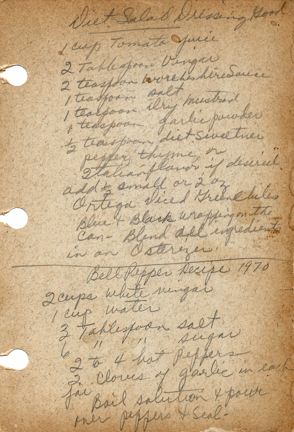 Diet Salad Dressing Good
1 cup Tomato juice
2 Tablespoon Vingar
2 teaspoon worcheshire Sauce
1 teaspoon salt
1 teaspoon dry mustard
1 teaspoon garlic powder
½ teaspoon diet Sweetner
pepper, thyme, or
Italian flavor if desired
add 1 small or 2 oz
Ortega Diced Green Chiles
Blue + Black wrapping on the
can - Blend all ingredients
in an Osterizer
Bell Pepper Recipe 1970
2 cups white vingar
1 cup water
3 Tablespoon salt
6 " " sugar
2 to 4 hot Peppers
2 cloves of garlic in each
jar
Boil solution & pour
over peppers & Seal -